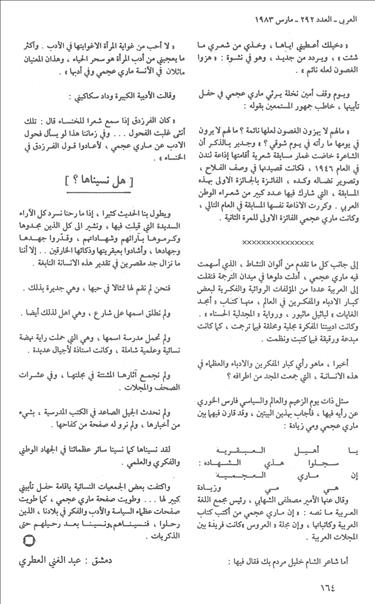 العربي - العدد ٢٩٢ - مارس ١٩٨٣
« دخيلك أعطيني اياها ، وخذي من شعري ما
شئت » ، ويردد من جديد ، وهو في نشوة : « هزوا
الغصون لعله نائم » .
ويوم وقف أمين نخلة يرثي ماري عجمي في حفل
تأبينها ، خاطب جمهور المستمعين بقوله :
« مالهم لا يهزون الغصون لعلها نائمة ؟ مالهم لا يرون
في يومها ما رأته في يوم شوقي ؟ » وجدير بالذكر أن
الشاعرة خاضت غمار مسابقة شعرية أقامتها إذاعة لندن
في العام ١٩٤٦ ، فكانت قصيدتها في وصف الفلاح ،
وتصوير نضاله وكده ، الفائزة بالجائزة الأولى بهذه
المسابقة ، التي شارك فيها عدد كبير من شعراء الوطن
العربي . وكررت الاذاعة نفسها المسابقة في العام التالي ،
وكانت ماري عجمي الفائزة الاولى للمرة الثانية .
××××××××××××××
إلى جانب كل ما تقدم من ألوان النشاط ، الذي أسهمت
فيه ماري عجمي ، أدلت دلوها في ميدان الترجمة فنقلت
إلى العربية عددا من المؤلفات الروائية والفكرية لبعض
كبار الادباء والمفكرين في العالم ، منها كتاب « أمجد
الغايات » لباثيل ماثيوز ، ورواية « المجدلية الحسناء » .
وكانت اديبتنا المفكرة مجلية ومحلقة فيما ترجمت ، كما كانت
مبدعة ورقيقة فيما كتبت ونظمت .
أخيرا ، ماهو رأي كبار المفكرين والادباء والعظماء في
هذه الانسانة ، التي جمعت المجد من اطرافه ؟
سئل ذات يوم الزعيم والعالم والسياسي فارس الخوري
عن رأيه فيها ، فأجاب بهذين البيتين ، وقد قارن فيهما بين
ماري عجمي ومي زيادة :
يا أهيل العبقرية
سجلوا هذي الشهاده :
إن ماري العجمية
هي مي وزيادة
وقال عنها الأمير مصطفى الشهابي ، رئيس مجمع اللغة
العربية ما نصه : « إن ماري عجمي من أكتب كتاب
العربية وكاتباتها ، وإن مجلة « العروس » كانت فريدة بين
المجلات العربية .
أما شاعر الشام خليل مردم بك فقال فيها :
« لا أحب من غواية المرأة الا غوايتها في الأدب . وأكثر
ما يعجبني من أدب المرأة هو سحر الحياء ، وهذان المعنيان
ماثلان في الآنسة ماري عجمي وفي أدبها » .
وقالت الأديبة الكبيرة وداد سكاكيني :
« كان الفرزدق إذا سمع شعرا للخنساء قال : تلك
أنثى غلبت الفحول ... وفي زماننا هذا لو يسأل فحول
الأدب عن ماري عجمي ، لأعادوا قول الفرزدق في
الخنساء » .
[ هل نسيناها ؟ ]
ويطول بنا الحديث كثيرا ، إذا ما رحنا نسرد كل الآراء
السديدة التي قيلت فيها ، ونشير الى كل الذين مجدوها
وكرموها بآرائهم وشهاداتهم ، وقدروا جهدها
وجهادها ، وأشادوا بعبقريتها وذكائها الخارقين .. إلا أننا
ما نزال جد مقصرين في تقدير هذه الانسانة النابغة .
فنحن لم نقم لها تمثالا في حيها ، وهي جديرة بذلك .
ولم نطلق اسمها على شارع ، وهي اهل لذلك أيضا .
ولم تحمل مدرسة اسمها ، وهي التي حملت راية نهضة
نسائية وعلمية شاملة ، وكانت استاذة لأجيال عديدة .
ولم نجمع آثارها المشتتة في مجلتها ، وفي عشرات
الصحف والمجلات .
ولم نحدث الجيل الصاعد في الكتب المدرسية ، بشيء
من أخبارها ، ولم نرو له صفحة من كفاحها .
لقد نسيناها كما نسينا سائر عظمائنا في الجهاد الوطني
والفكري والعلمي .
واكتفت بعض الجمعيات النسائية باقامة حفل تأبيني
كبير لها ... وطويت صفحة ماري عجمي ، كما طويت
صفحات عظماء السياسة والأدب والفكر في بلادنا ، الذين
رحلوا ، فنسيناهم ونسينا بعد رحيلهم حتى
الذكريات .
دمشق : عبد الغني العطري
١٦٤